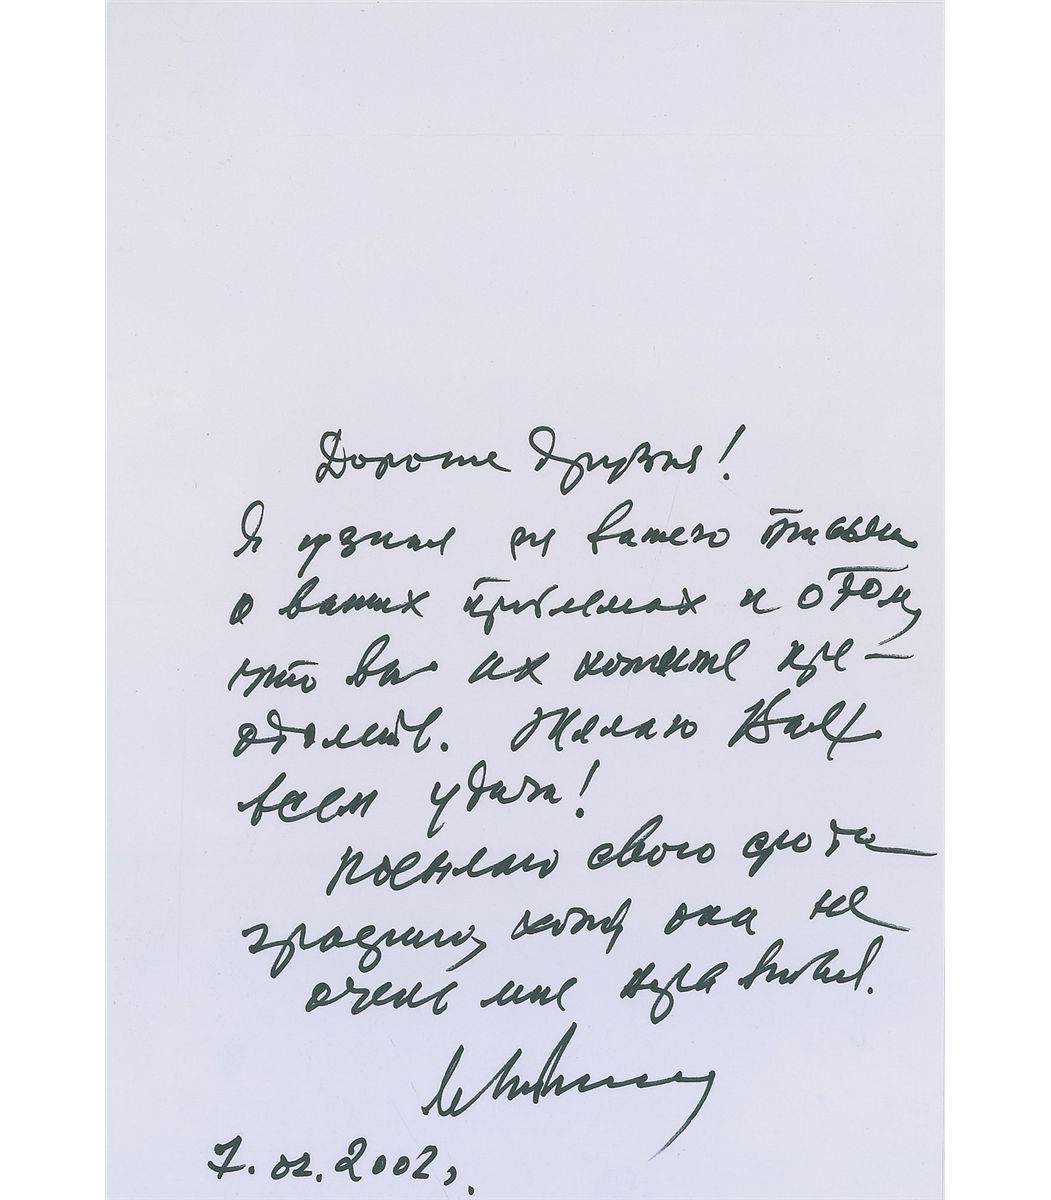 Дорогие друзья!
Я узнал из вашего письма
о ваших проблемах и о том,
что вы их хотите пре-
одолеть. Желаю Вам
всем удачи!
Посылаю свою фото
графию, хотя она не
очень мне нравится.
7. 02. 2002 г.